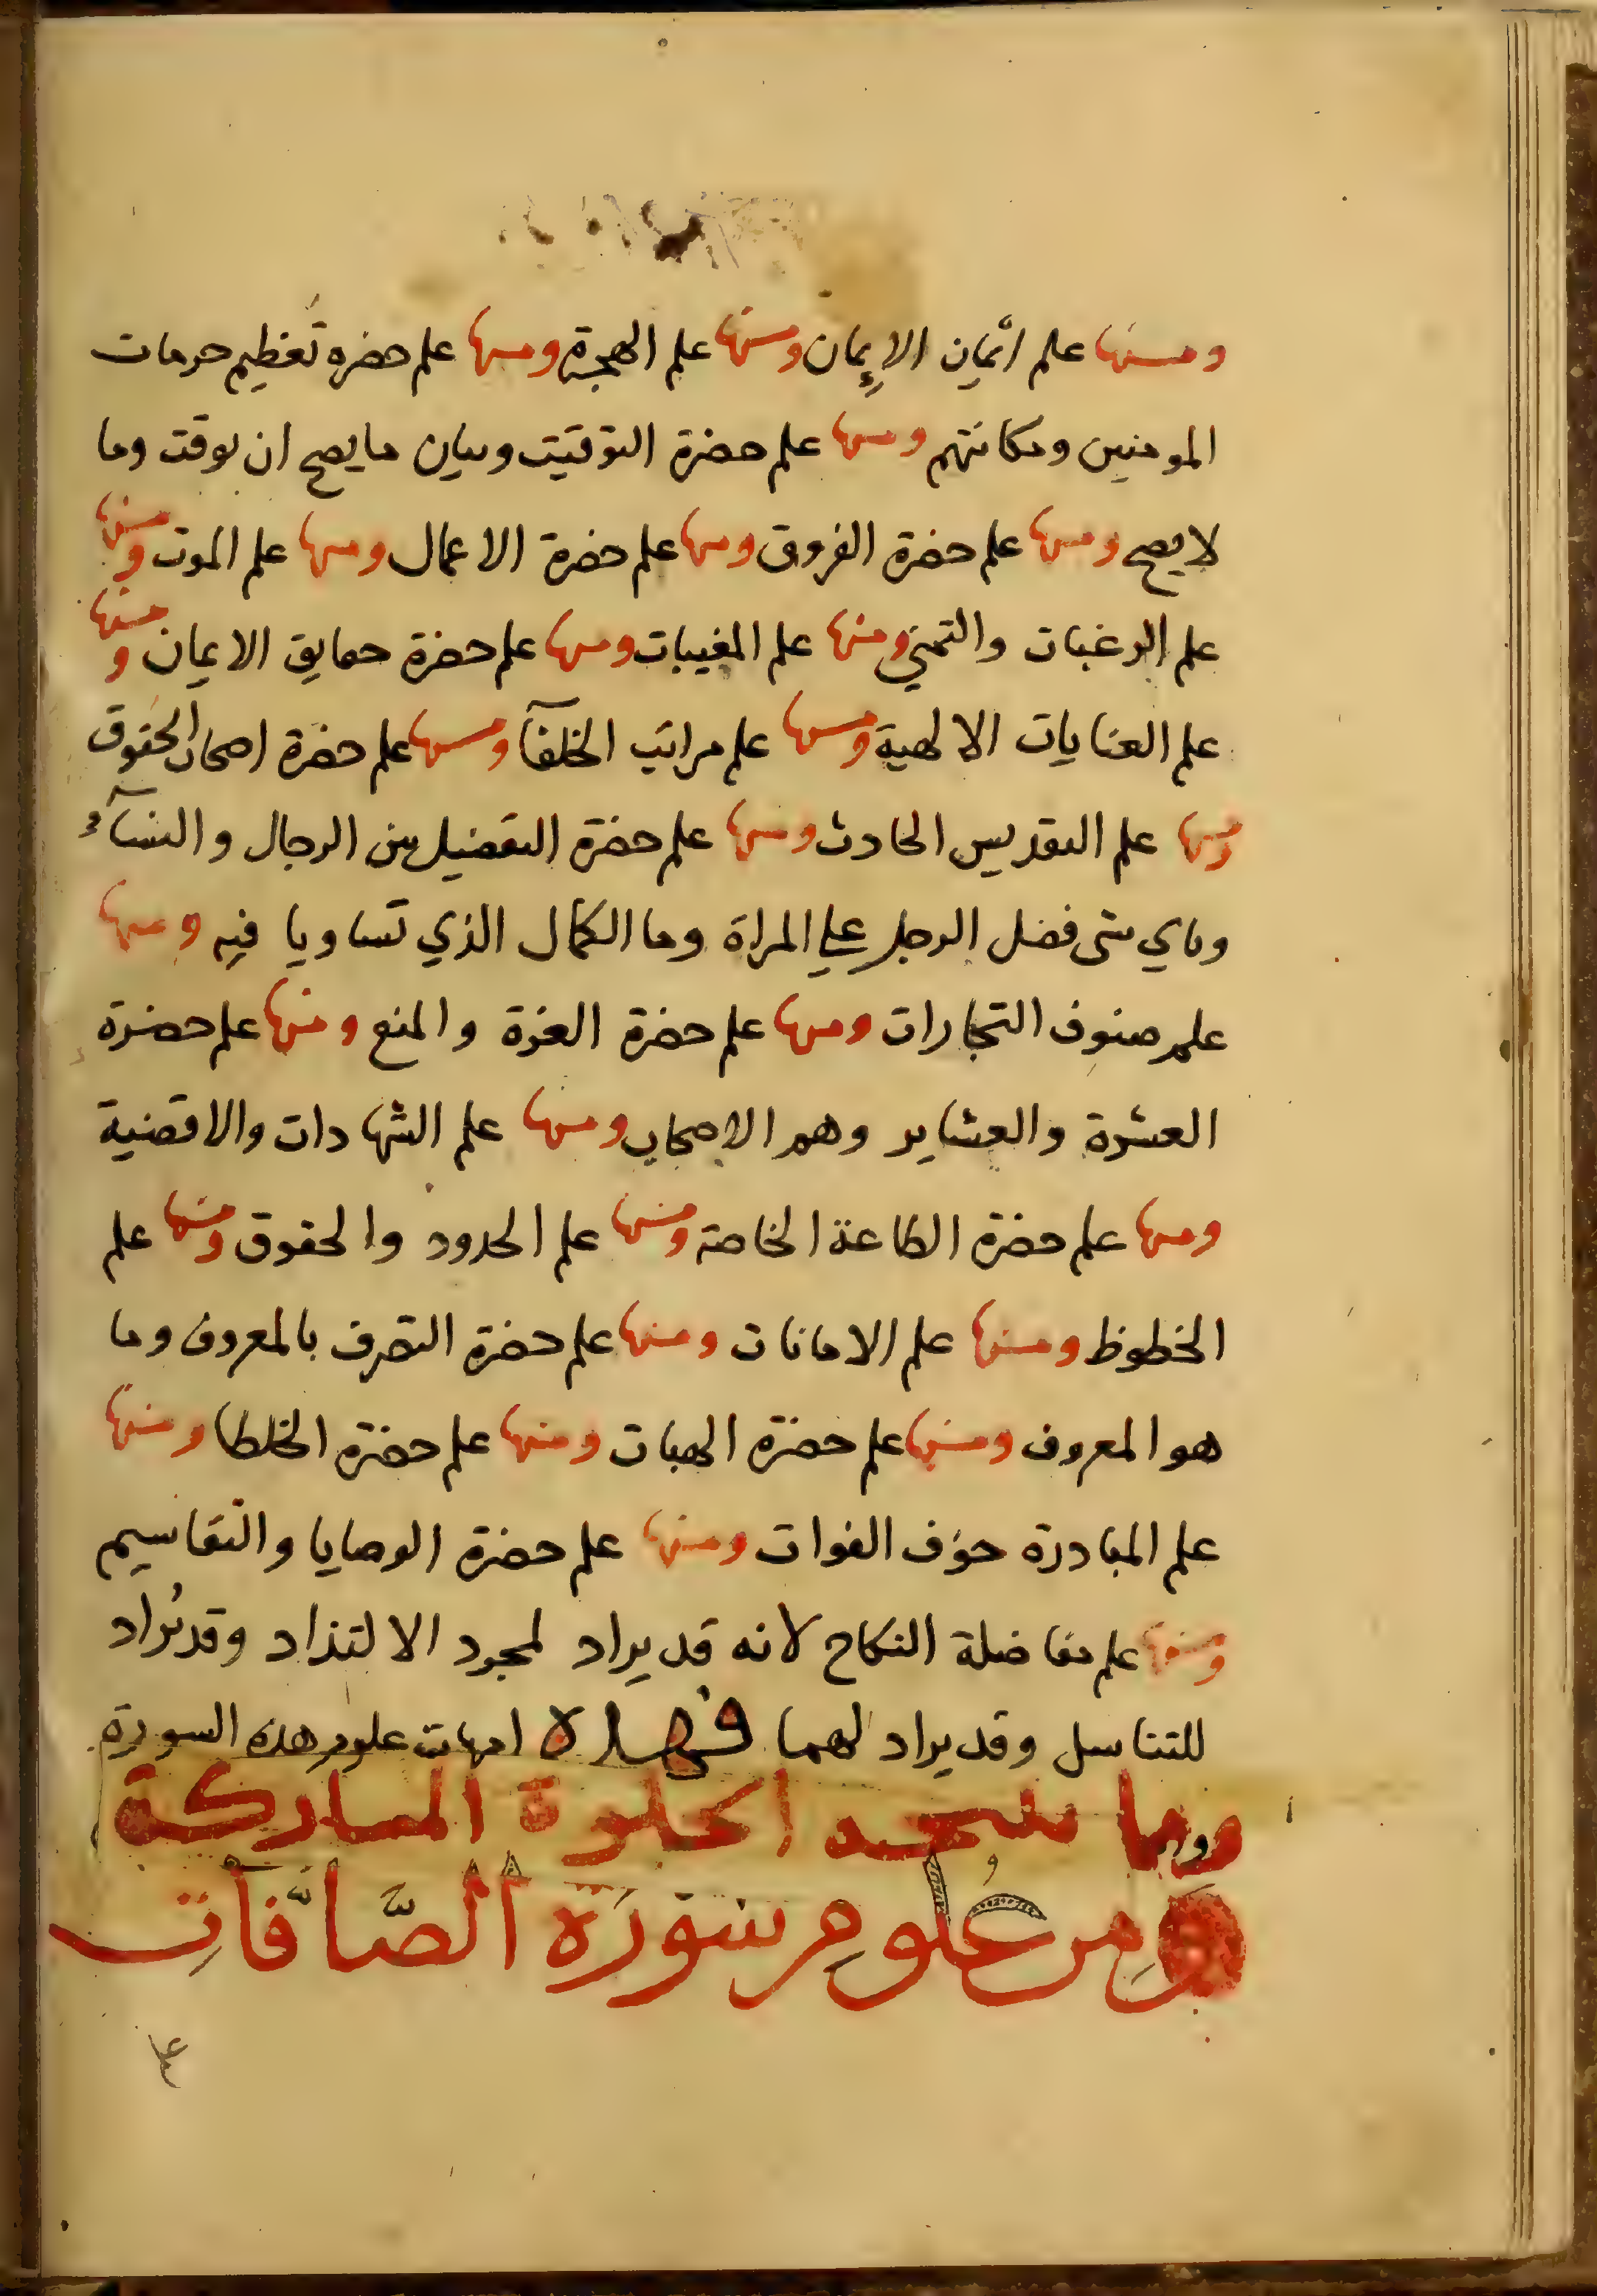 ومنها علم أثمان الإيمان ومنها علم الهجرة ومنها علم حضرة تعظيم حرمات
المومنين ومكانتهم ومنها علم حضرة التوقيت وبيان ما يصح ان يوقت وما
لا يصح ومنها علم حضرة الفروق ومنها علم حضرة الاعمال ومنها علم الموت ومنها
علم الرغبات والتمني ومنها علم المغيبات ومنها علم حضرة حقايق الايمان ومنها
علم العنايات الالهية ومنها علم مراتب الخلفآ ومنها علم حضرة اصحاب الحقوق
ومنها علم التقديس الحادث ومنها علم حضرة التفضيل بين الرجال والنسآء
وباي شى فضل الرجل على المراة وما الكمال الذي تساويا فيه ومنها
علم صنوف التجارات ومنها علم حضرة العزة والمنع ومنها علم حضرة
العشرة والعشاير وهم الاصحاب ومنها علم الشهادات والاقضية
ومنها علم حضرة الطاعة الخاصة ومنها علم الحدود والحقوق ومنها علم
الخطوظ ومنها علم الامانات ومنها علم حضرة التصرف بالمعروف وما
هو المعروف ومنها علم حضرة الهبات ومنها علم حضرة الخلطا ومنها
علم المبادرة خوف الفوات ومنها علم حضرة الوصايا والتقاسيم
ومنها علم مفاضلة النكاح لانه قد يراد لمجرد الالتذاد وقد يُراد
للتناسل وقد يراد لهما فهذه امهات علوم هذه السورة
ومما الخلوة المباركة
ومِن عُلومِ سورَة الصَّافّاتِ